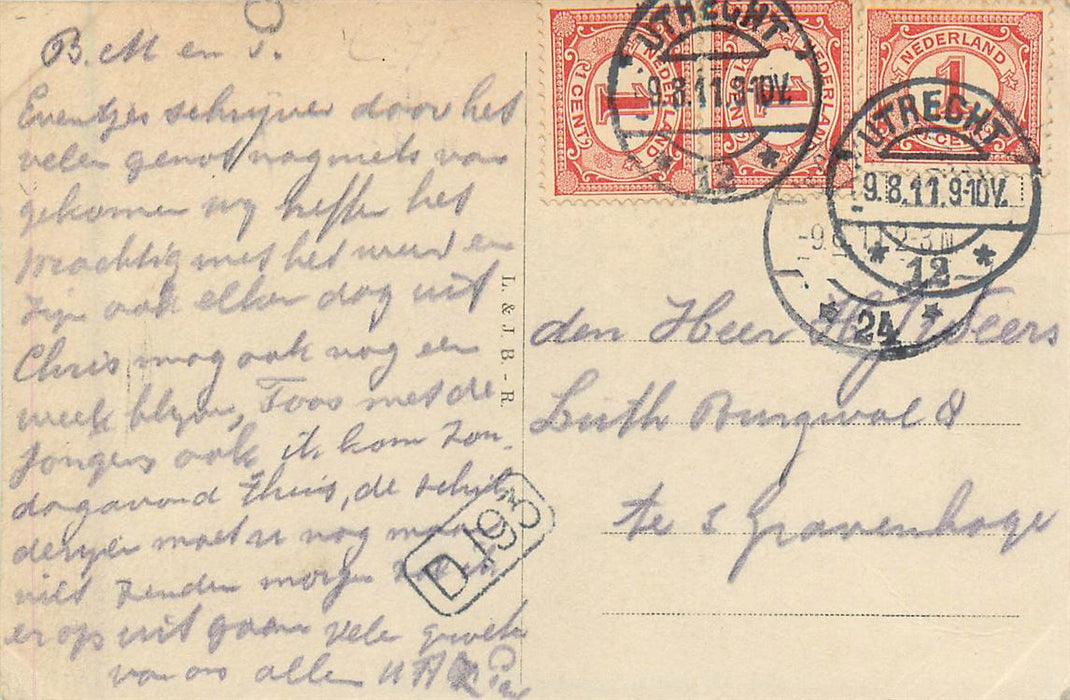 B. M en J.
Eventjes schrijven door het
vele genot nog niets van
gekomen wy heffen het
prachtig met het weer en
zijn ook elken dag uit
Chris mag ook nog een
week blyven, Toos met de
Jongens ook ik kom Zon-
dagavond Thuis, de schil
deryen moet u nog maar
niet zenden morgen
er op uit gaan vele groeten
van ons allen
L. & J. B. - R.
D 193
NEDERLAND
1 CENT
NEDERLAND
1
NEDERLAND
1
CENT
UTRECHT
9.8.11.9-10V.
12
UTRECHT
9.8.11.9-10V.
12
-9.8.11 2-3N
24
den Heer H. J. Feers
Luth Burgwal 8
te s Gravenhage